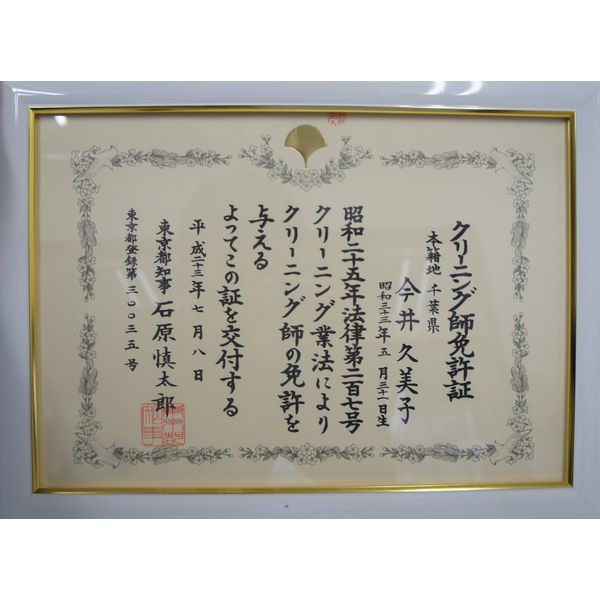 クリーニング師免許証
本籍地 千葉県
今井久美子
昭和三十三年五月三十一日生
昭和二十五年法律第二百七号
クリーニング業法により
クリーニング師の免許を
与える
よってこの証を交付する
平成二十三年七月八日
東京都知事 石原慎太郎
東京都登録第三〇〇三五号